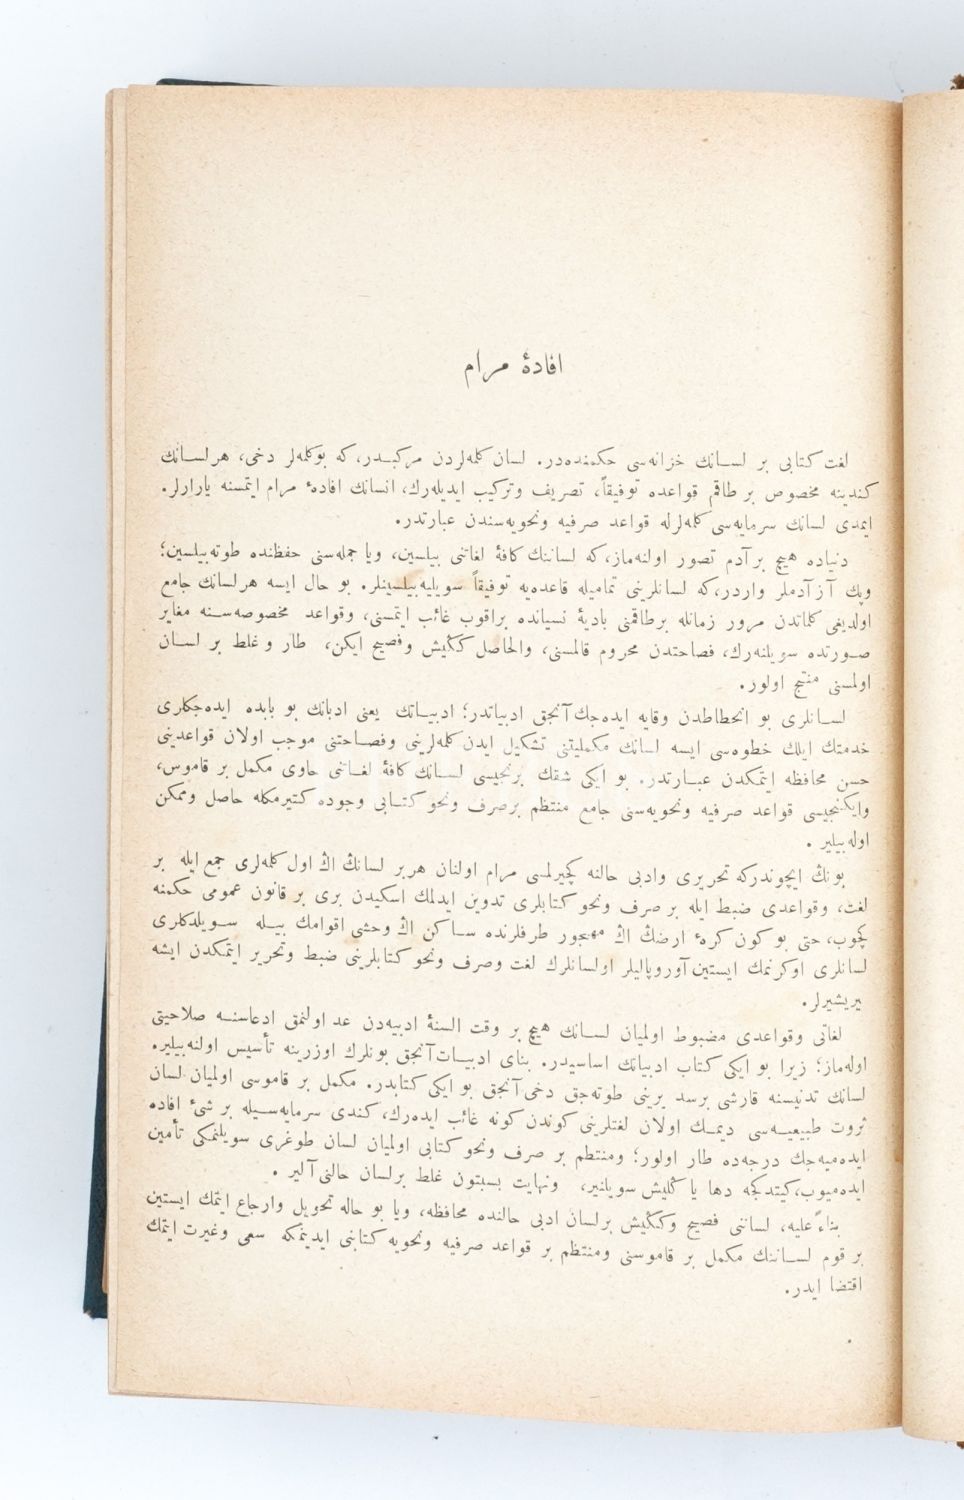 افادهٔ مرام
لغت كتابی بر لسانك خزانه‌سی حكمنده‌در. لسان كله‌لردن مركبدر، كه بوكله‌لر دخی، هر لسانك
كندینه مخصوص بر طاقم قواعده توفیقاً، تصریف وتركیب ایدیله‌رك، انسانك افادهٔ مرام ایتمسنه یارارلر.
ایمدی لسانك سرمایه‌سی كله‌لرله قواعد صرفیه ونحویه‌سندن عبارتدر.
دنیاده هیچ بر آدم تصور اولنه‌ماز، كه لساننك كافهٔ لغاتنی بیلسین، ویا جمله‌سنی حفظنده طوته‌بیلسین؛
وپك آز آدملر واردر، كه لسانلرینی تمامیله قاعده‌یه توفیقاً سویلیه‌بیلسینلر. بو حال ایسه هر لسانك جامع
اولدیغی كلماتدن مرور زمانله برطاقمنی بادیهٔ نسیانده براقوب غائب ایتمسنی، وقواعد مخصوصه‌سنه مغایر
صورتده سویلنه‌رك، فصاحتدن محروم قالمسنی، والحاصل كڭیش وفصیح ایكن، طار و غلط بر لسان
اولمسنی منتج اولور.
لسانلری بو انحطاطدن وقایه ایده‌جك آنجق ادبیاتدر؛ ادبیاتك یعنی ادبانك بو بابده ایده‌جكلری
خدمتك ایلك خطوه‌سی ایسه لسانك مكملیتنی تشكیل ایدن كله‌لرینی وفصاحتنی موجب اولان قواعدینی
حسن محافظه ایتمكدن عبارتدر. بو ایكی شقك برنجیسی لسانك كافهٔ لغاتنی حاوی مكمل بر قاموس،
وایكنجیسی قواعد صرفیه ونحویه‌سنی جامع منتظم برصرف ونحو كتابی وجوده كتیرمكله حاصل وممكن
اوله‌بیلیر .
بونڭ ایچوندركه تحریری وادبی حالنه كچیرلمسی مرام اولنان هربر لسانڭ اڭ اول كله‌لری جمع ایله بر
لغت، وقواعدی ضبط ایله بر صرف ونحو كتابلری تدوین ایدلمك اسكیدن بری بر قانون عمومی حكمنه
كچوب، حتی بو كون كرهٔ ارضڭ اڭ مهجور طرفلرنده ساكن اڭ وحشی اقوامك بیله سویلدكلری
لسانلری اوكرنمك ایستین آوروپالیلر اولسانلرك لغت وصرف ونحو كتابلرینی ضبط وتحریر ایتمكدن ایشه
یریشیرلر.
لغاتی وقواعدی مضبوط اولمیان لسانك هیچ بر وقت السنهٔ ادبیه‌دن عد اولنمق ادعاسنه صلاحیتی
اوله‌ماز؛ زیرا بو ایكی كتاب ادبیاتك اساسیدر. بنای ادبیات آنجق بونلرك اوزرینه تأسیس اولنه‌بیلیر.
لسانك تدنیسنه قارشی برسد یرینی طوته‌جق دخی آنجق بو ایكی كتابدر. مكمل بر قاموسی اولمیان لسان
ثروت طبیعیه‌سی دیمك اولان لغتلرینی كوندن كونه غائب ایده‌رك، كندی سرمایه‌سیله بر شیٔ افاده
ایده‌میه‌جك درجه‌ده طار اولور؛ ومنتظم بر صرف ونحو كتابی اولمیان لسان طوغری سویلنمكی تأمین
ایده‌میوب، كیتدكجه دها یاڭلیش سویلنیر، ونهایت بسبتون غلط برلسان حالنی آلیر .
بناءً علیه، لساننی فصیح وكڭیش برلسان ادبی حالنده محافظه، ویا بو حاله تحویل وارجاع ایتمك ایستین
بر قوم لساننك مكمل بر قاموسنی ومنتظم بر قواعد صرفیه ونحویه كتابنی ایدینمكه سعی وغیرت ایتمك
اقتضا ایدر.